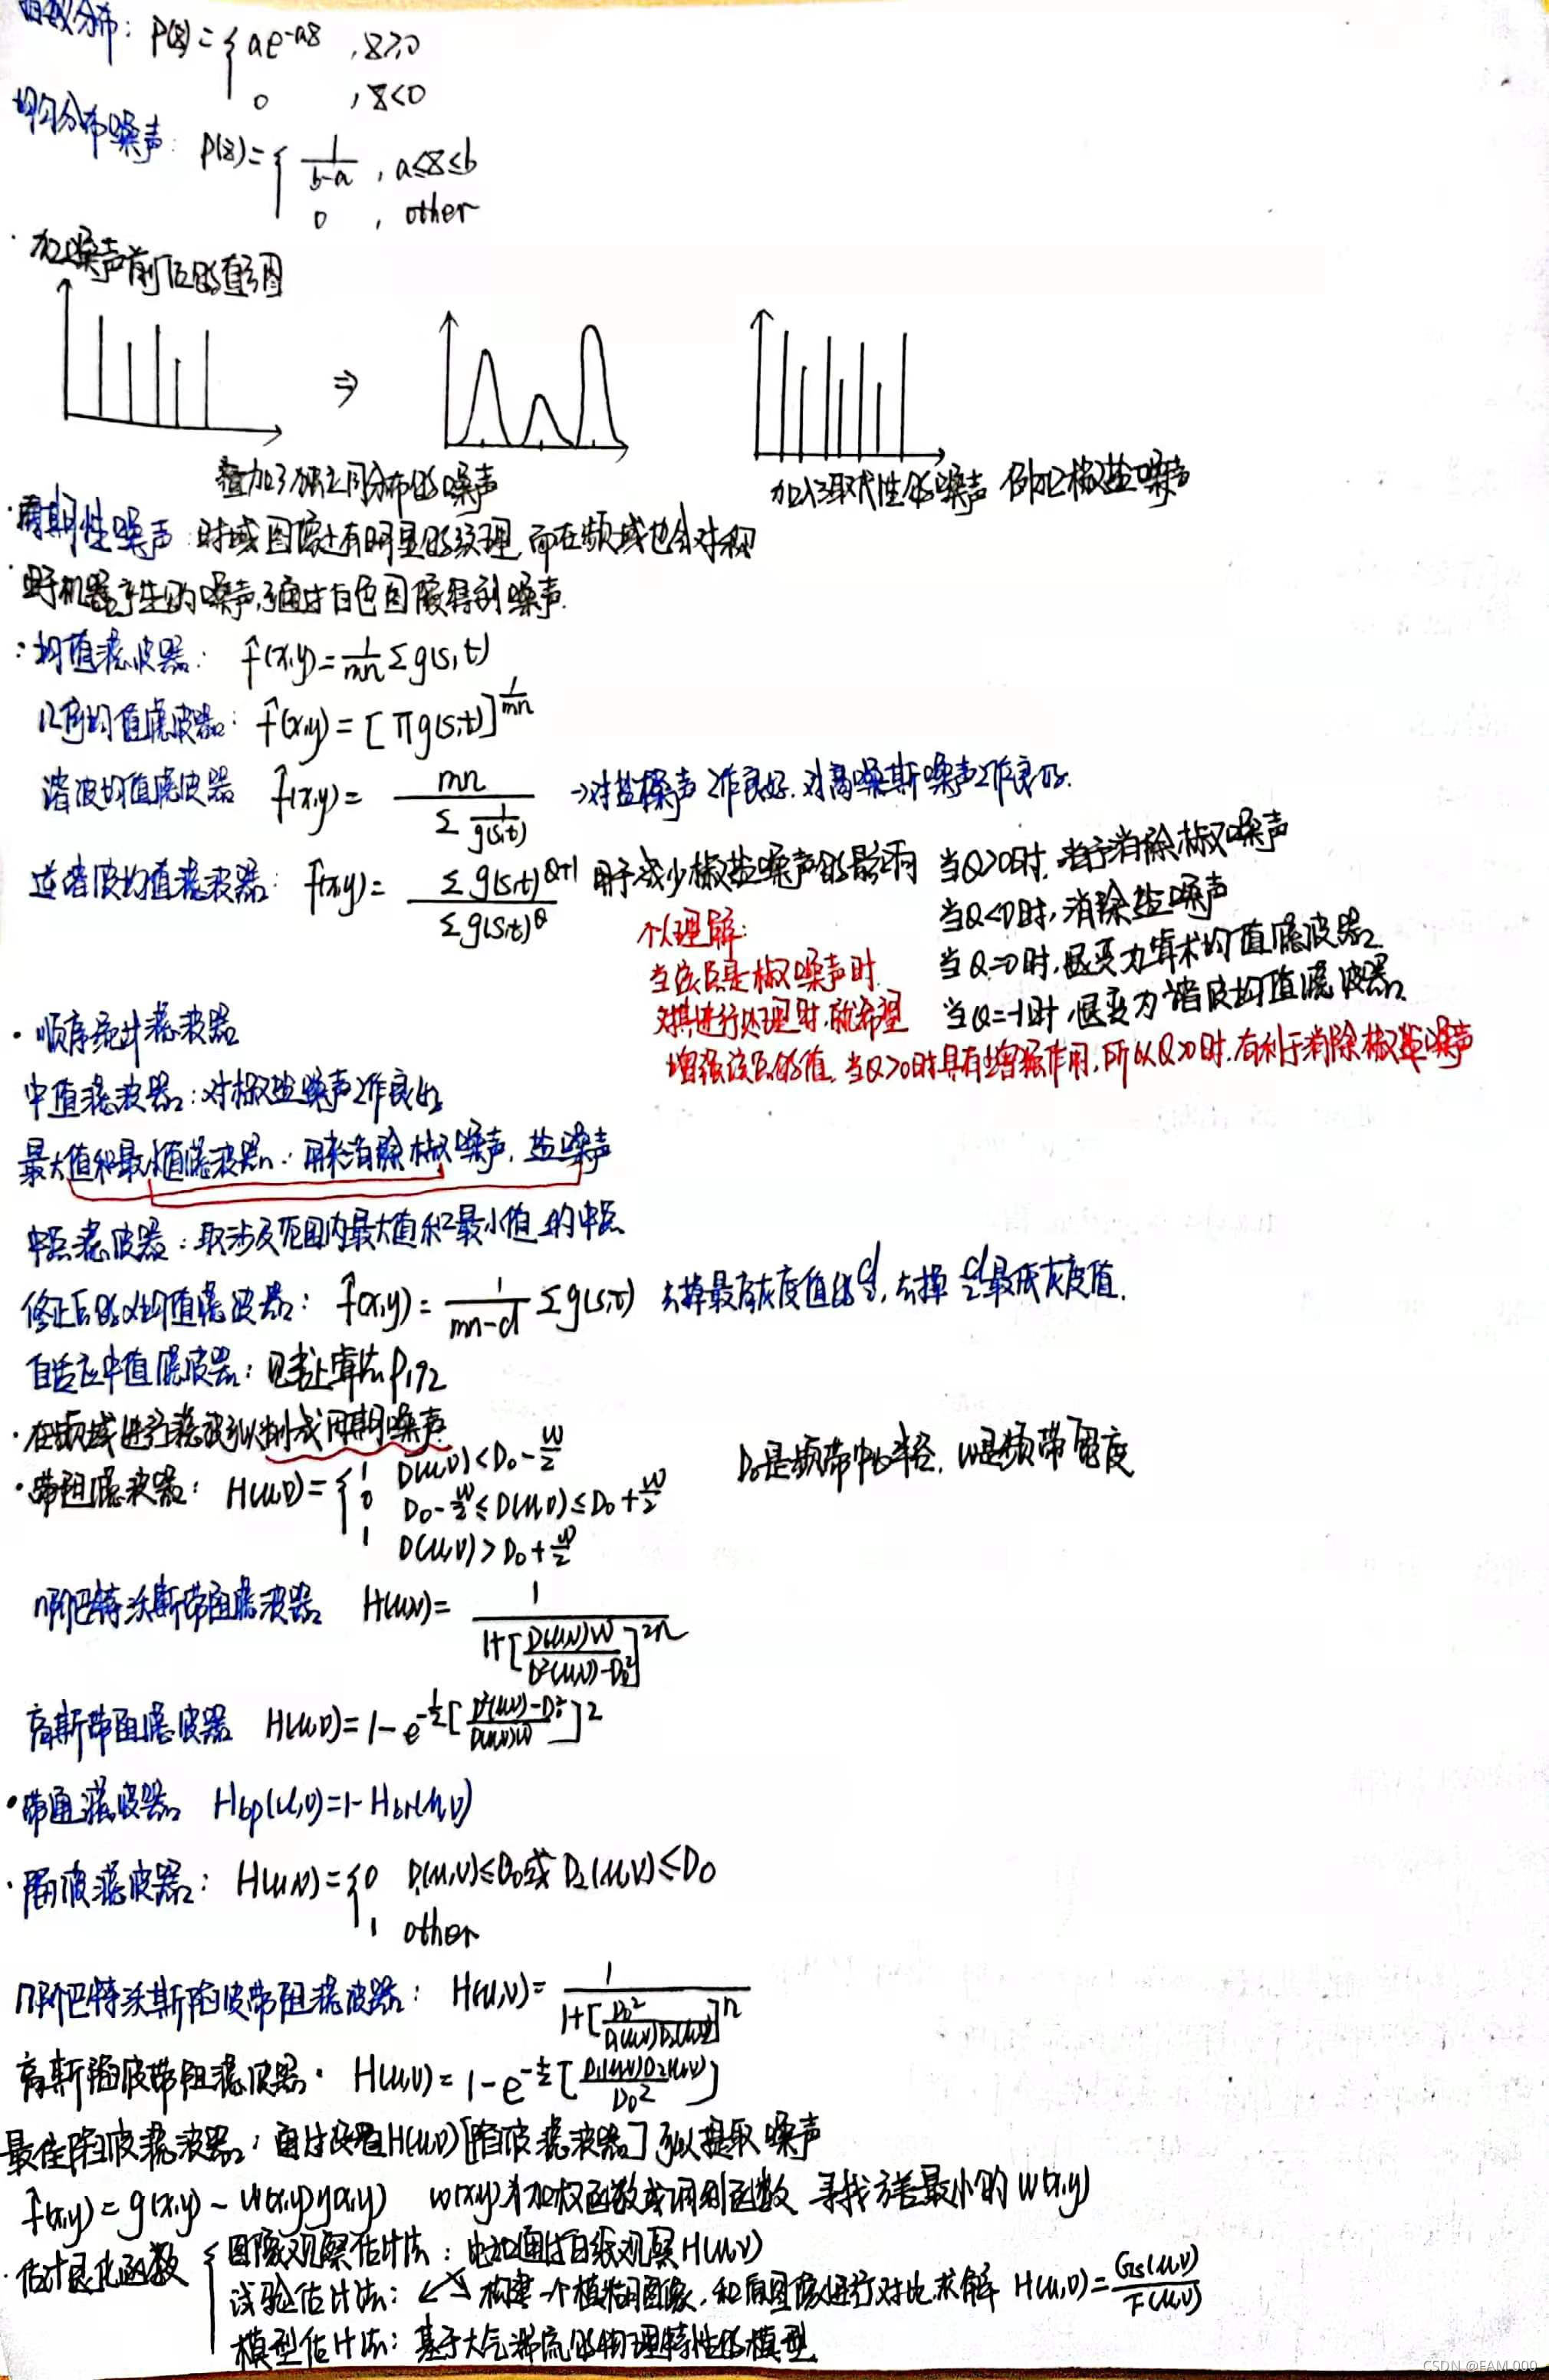 指数分布: P(z)={ ae^-az , z≥0
0 , z<0
均匀分布噪声: P(z)={ 1/(b-a) , a≤z≤b
0 , other
· 加噪声前后的直方图
⇒
叠加了独立同分布的噪声 加入取代性的噪声 例如椒盐噪声
· 周期性噪声: 时域图像过有明显的纹理,而在频域也会对称
· 由于机器产生的噪声,可通过白色图像得到噪声.
: 均值滤波器: f̂(x,y)=1/mn Σg(s,t)
几何均值滤波器: f̂(x,y)=[πg(s,t)]^(1/mn)
谐波均值滤波器 f̂(x,y)= mn/(Σ 1/g(s,t)) →对盐噪声工作良好.对高斯噪声工作良好.
逆谐波均值滤波器: f̂(x,y)= Σg(s,t)^(Q+1)/Σg(s,t)^Q 用于减少椒盐噪声的影响 当Q>0时,用于消除椒噪声
当Q<0时,消除盐噪声
当Q=0时,退变为算术均值滤波器
当Q=-1时,退变为谐波均值滤波器
个人理解:
当该点是椒噪声时.
对其进行处理时,就希望
增强该点的值,当Q>0时具有增强作用,所以Q>0时,有利于消除椒噪声
· 顺序统计滤波器
中值滤波器:对椒盐噪声工作良好
最大值和最小值滤波器:用来消除椒噪声,盐噪声
中点滤波器:取涉及范围内最大值和最小值的中点
修正后的α均值滤波器: f̂(x,y)= 1/(mn-d) Σg(s,t) 去掉最高灰度值的d/2,去掉d/2最低灰度值.
自适应中值滤波器:见书上算法P192
· 在频域进行滤波以削减周期噪声
· 带阻滤波器: H(u,v)={ 1 D(u,v)<D₀-W/2
0 D₀-W/2≤D(u,v)≤D₀+W/2
1 D(u,v)>D₀+W/2
D₀是频带中心半径,W是频带宽度
n阶巴特沃斯带阻滤波器 H(u,v)= 1/(1+[D(u,v)W/(D²(u,v)-D₀²)]^2n)
高斯带阻滤波器 H(u,v)=1-e^-1/2[(D²(u,v)-D₀²)/(D(u,v)W)]²
· 带通滤波器 Hbp(u,v)=1-Hbr(u,v)
· 陷波滤波器: H(u,v)={ 0 D₁(u,v)≤D₀或D₂(u,v)≤D₀
1 other
n阶巴特沃斯陷波带阻滤波器: H(u,v)= 1/(1+[D₀²/(D₁(u,v)D₂(u,v))]^n)
高斯陷波带阻滤波器· H(u,v)=1-e^-1/2[D₁(u,v)D₂(u,v)/D₀²]
最佳陷波滤波器:通过设置H(u,v)[陷波滤波器]可以提取噪声
f̂(x,y)=g(x,y)-w(x,y)η(x,y) w(x,y)为加权函数或调制函数 寻找方差最小的w(x,y)
· 估计退化函数 { 图像观察估计法:比如通过白纸观察H(u,v)
试验估计法: 构建一个模糊图像,和原图像进行对比求解 H(u,v)=Gs(u,v)/F(u,v)
模型估计法:基于大气湍流的物理特性的模型
CSDN @FAM 000